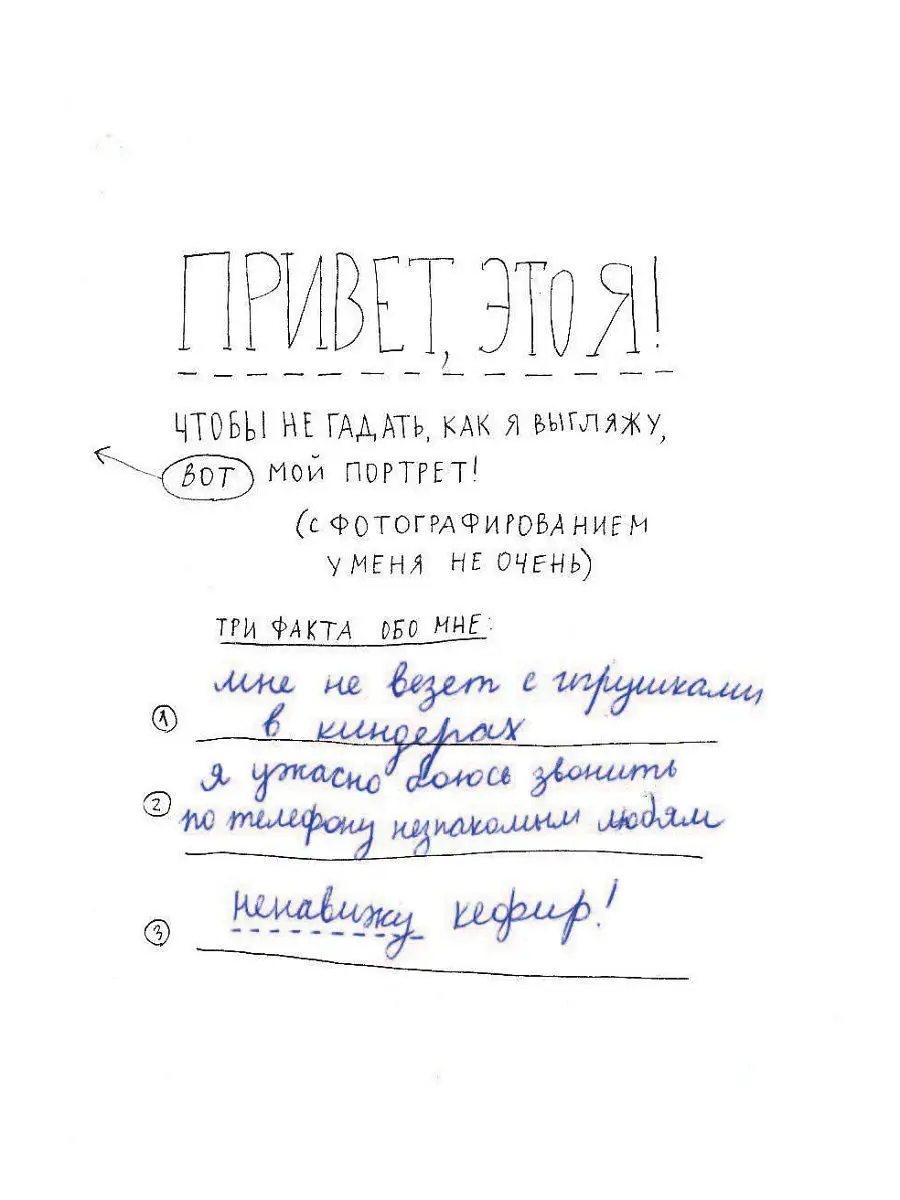 ПРИВЕТ, ЭТО Я!
ЧТОБЫ НЕ ГАДАТЬ, КАК Я ВЫГЛЯЖУ,
ВОТ МОЙ ПОРТРЕТ!
(С ФОТОГРАФИРОВАНИЕМ
У МЕНЯ НЕ ОЧЕНЬ)
ТРИ ФАКТА ОБО МНЕ:
мне не везет с игрушками
1 в киндерах
я ужасно боюсь звонить
2 по телефону незнакомым людям
3 ненавижу кефир!